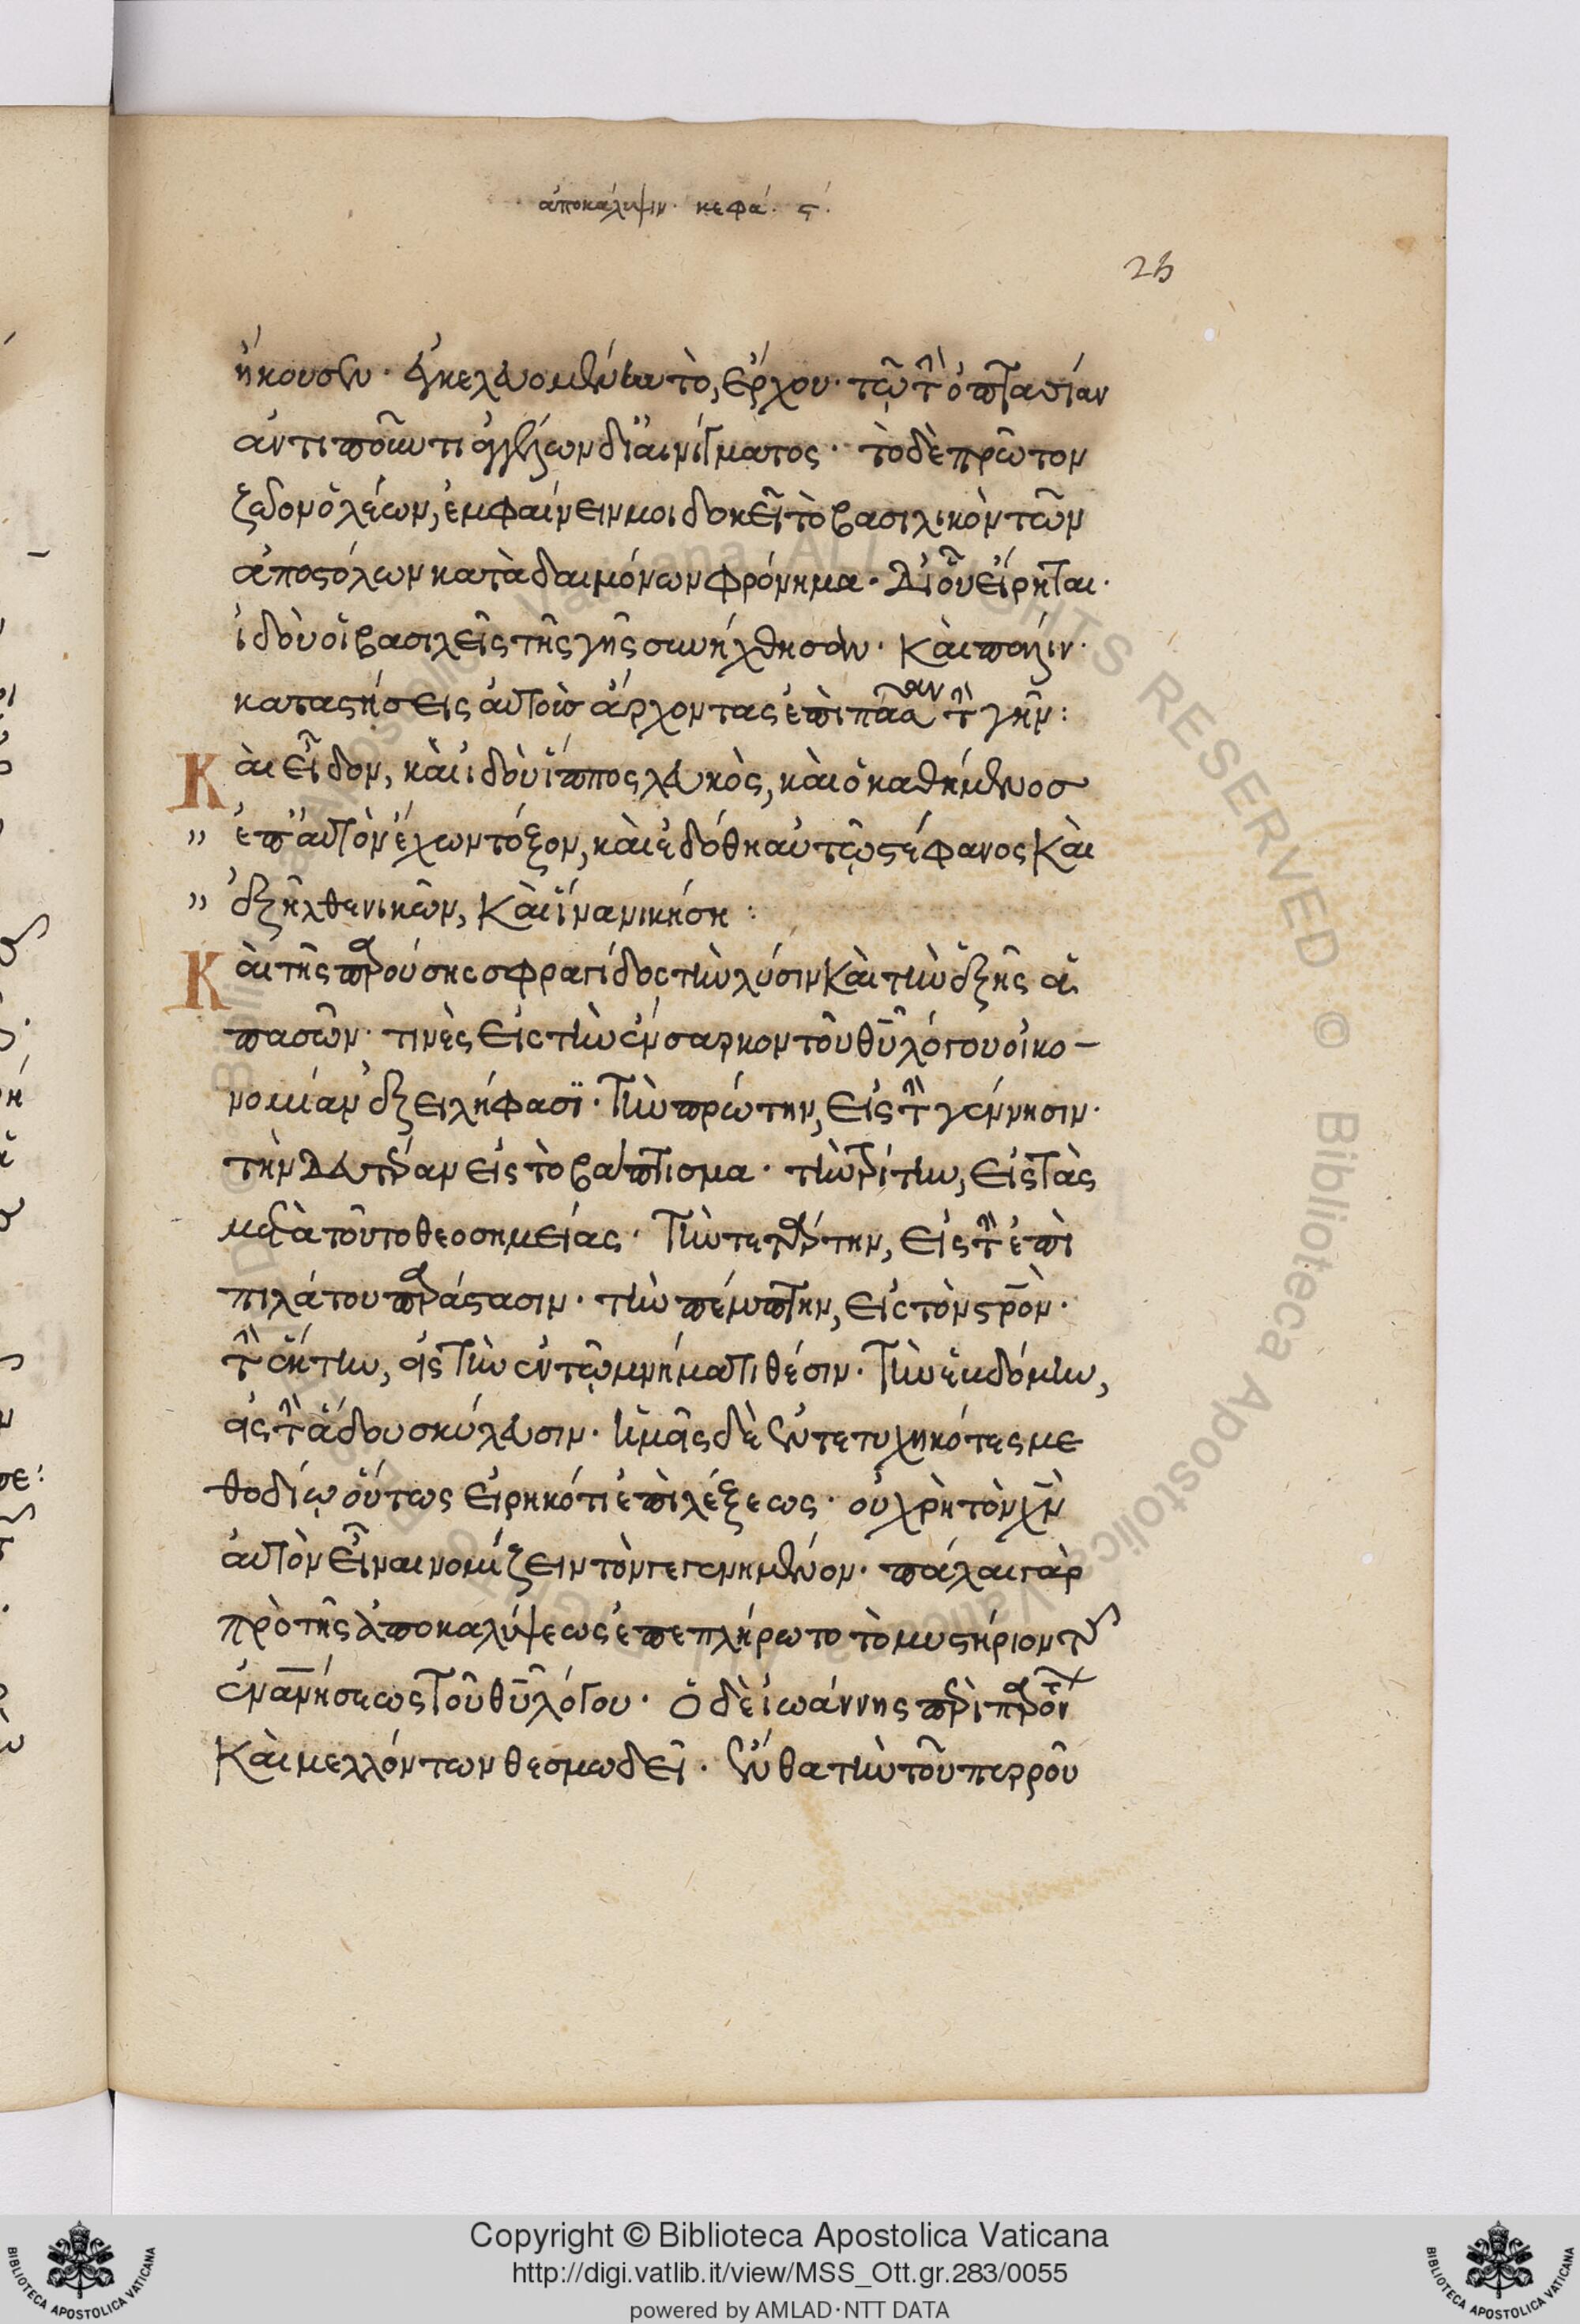 ἀποκάλυψιν. κεφά. ς.
26
ἤκουσεν. ἐγκελευομένου τὸ, ἔρχου. τῷ τὴν ὀπτασίαν
ἀντιποῦντι ἀγγέλων δι' αἰνίγματος. τὸ δὲ πρῶτον
ζῶον ὁ λέων, ἐμφαίνειν μοι δοκεῖ τὸ βασιλικὸν τῶν
ἀποστόλων κατὰ δαιμόνων φρόνημα. δι' οὗ εἴρηται.
ἰδοὺ οἱ βασιλεῖς τῆς γῆς συνήχθησαν. καὶ πάλιν.
καταστήσεις αὐτοὺς ἄρχοντας ἐπὶ πᾶσαν τὴν γῆν:
Καὶ εἶδον, καὶ ἰδοὺ ἵππος λευκὸς, καὶ ὁ καθήμενος
" ἐπ' αὐτὸν ἔχων τόξον, καὶ ἐδόθη αὐτῷ στέφανος καὶ
" ἐξῆλθε νικῶν, καὶ ἵνα νικήσῃ:
Καὶ τῆς παρούσης σφραγίδος τὴν λύσιν καὶ τὴν ἑξῆς ἁ
πασῶν. τινὲς εἰς τὴν ἔνσαρκον τοῦ θυ λόγου οἰκο-
νομίαν ἐξειλήφασϊ. τὴν πρώτην, εἰς τὴν γέννησιν.
τὴν δευτέραν εἰς τὸ βάπτισμα. τὴν τρίτην, εἰς τὰς
μετὰ τοῦτο θεοσημείας. τὴν τετάρτην, εἰς τὴν ἐπὶ
πιλάτου παράστασιν. τὴν πέμπτην, εἰς τὸν στρον.
τὴν ἕκτην, εἰς τὴν ἐν τῷ μνήματι θέσιν. τὴν ἑβδόμην,
εἰς τὴν ἅδου σκύλευσιν. ἡμεῖς δὲ ἐντετυχηκότες με
θοδίῳ οὕτως εἰρηκότι ἐπὶ λέξεως. οὐ χρὴ τὸν χν
αὐτὸν εἶναι νομίζειν τὸν γεγεννημένον. πάλαι γὰρ
πρὸ τῆς ἀποκαλύψεως ἐπεπλήρωτο τὸ μυστήριον τῆς
ἐνανήσεως τοῦ θυ λόγου. ὁ δὲ ἰωάννης περὶ παρόντων
καὶ μελλόντων θεσμωδεῖ. ἔνθα τὴν τοῦ πυρροῦ
Copyright © Biblioteca Apostolica Vaticana
http://digi.vatlib.it/view/MSS_Ott.gr.283/0055
powered by AMLAD·NTT DATA